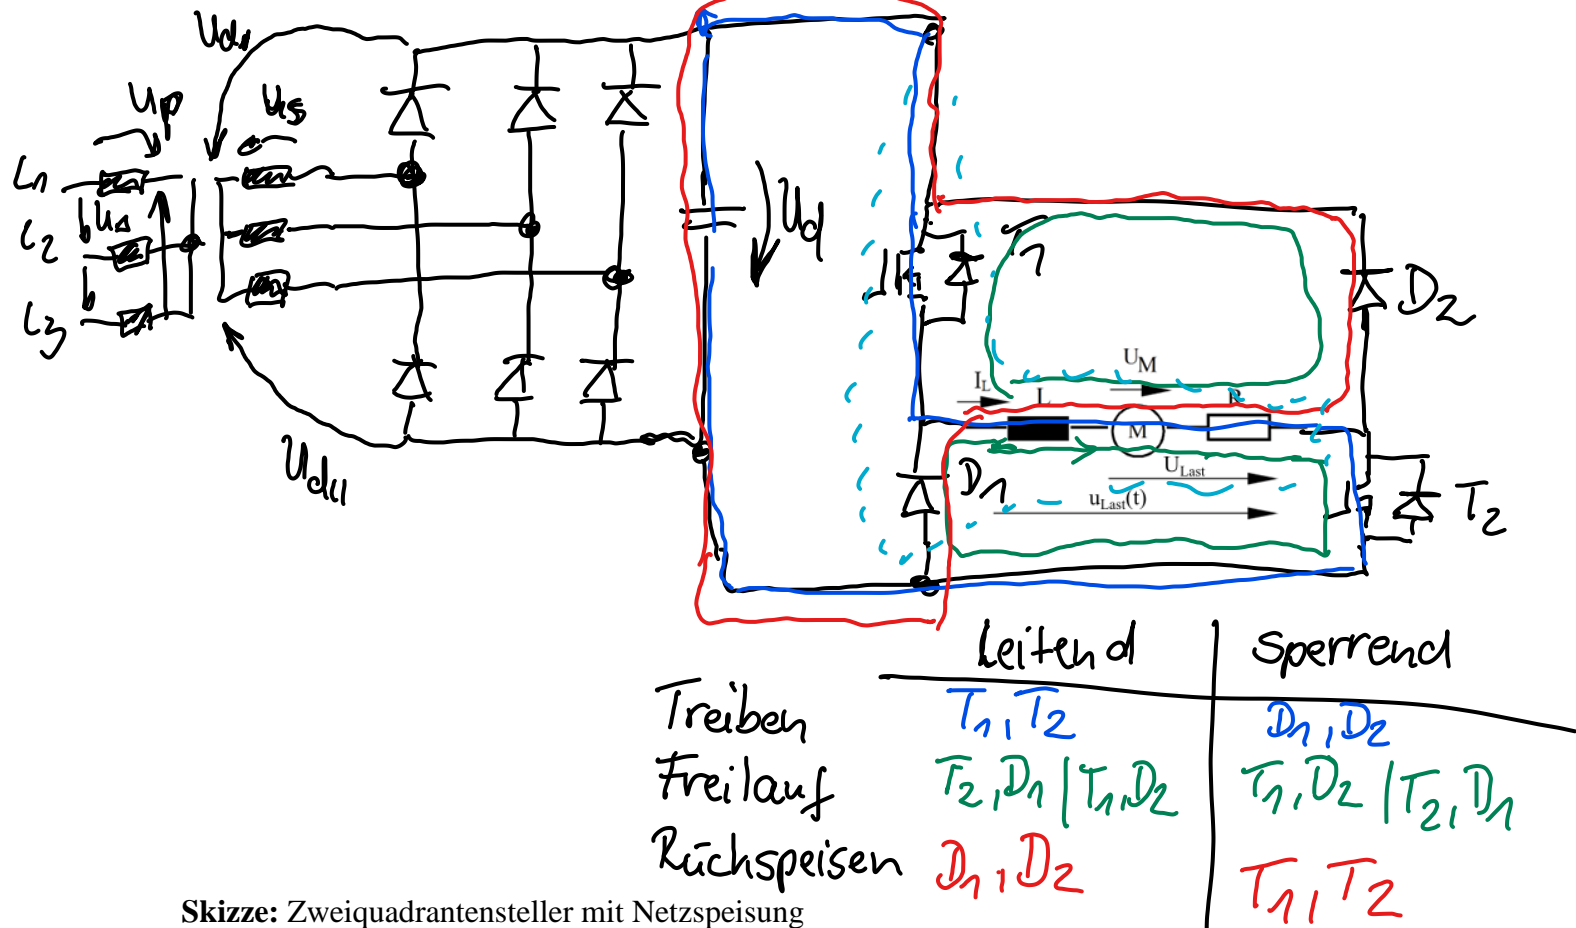 Ud1
Up
Us
L1
UΔ
L2
L3
Ud
Ud11
T1
D2
UM
IL
L
R
M
D1
ULast
uLast(t)
T2
Leitend Sperrend
Treiben T1, T2 D1, D2
Freilauf T2, D1 | T1, D2 T1, D2 | T2, D1
Rückspeisen D1, D2 T1, T2
Skizze: Zweiquadrantensteller mit Netzspeisung